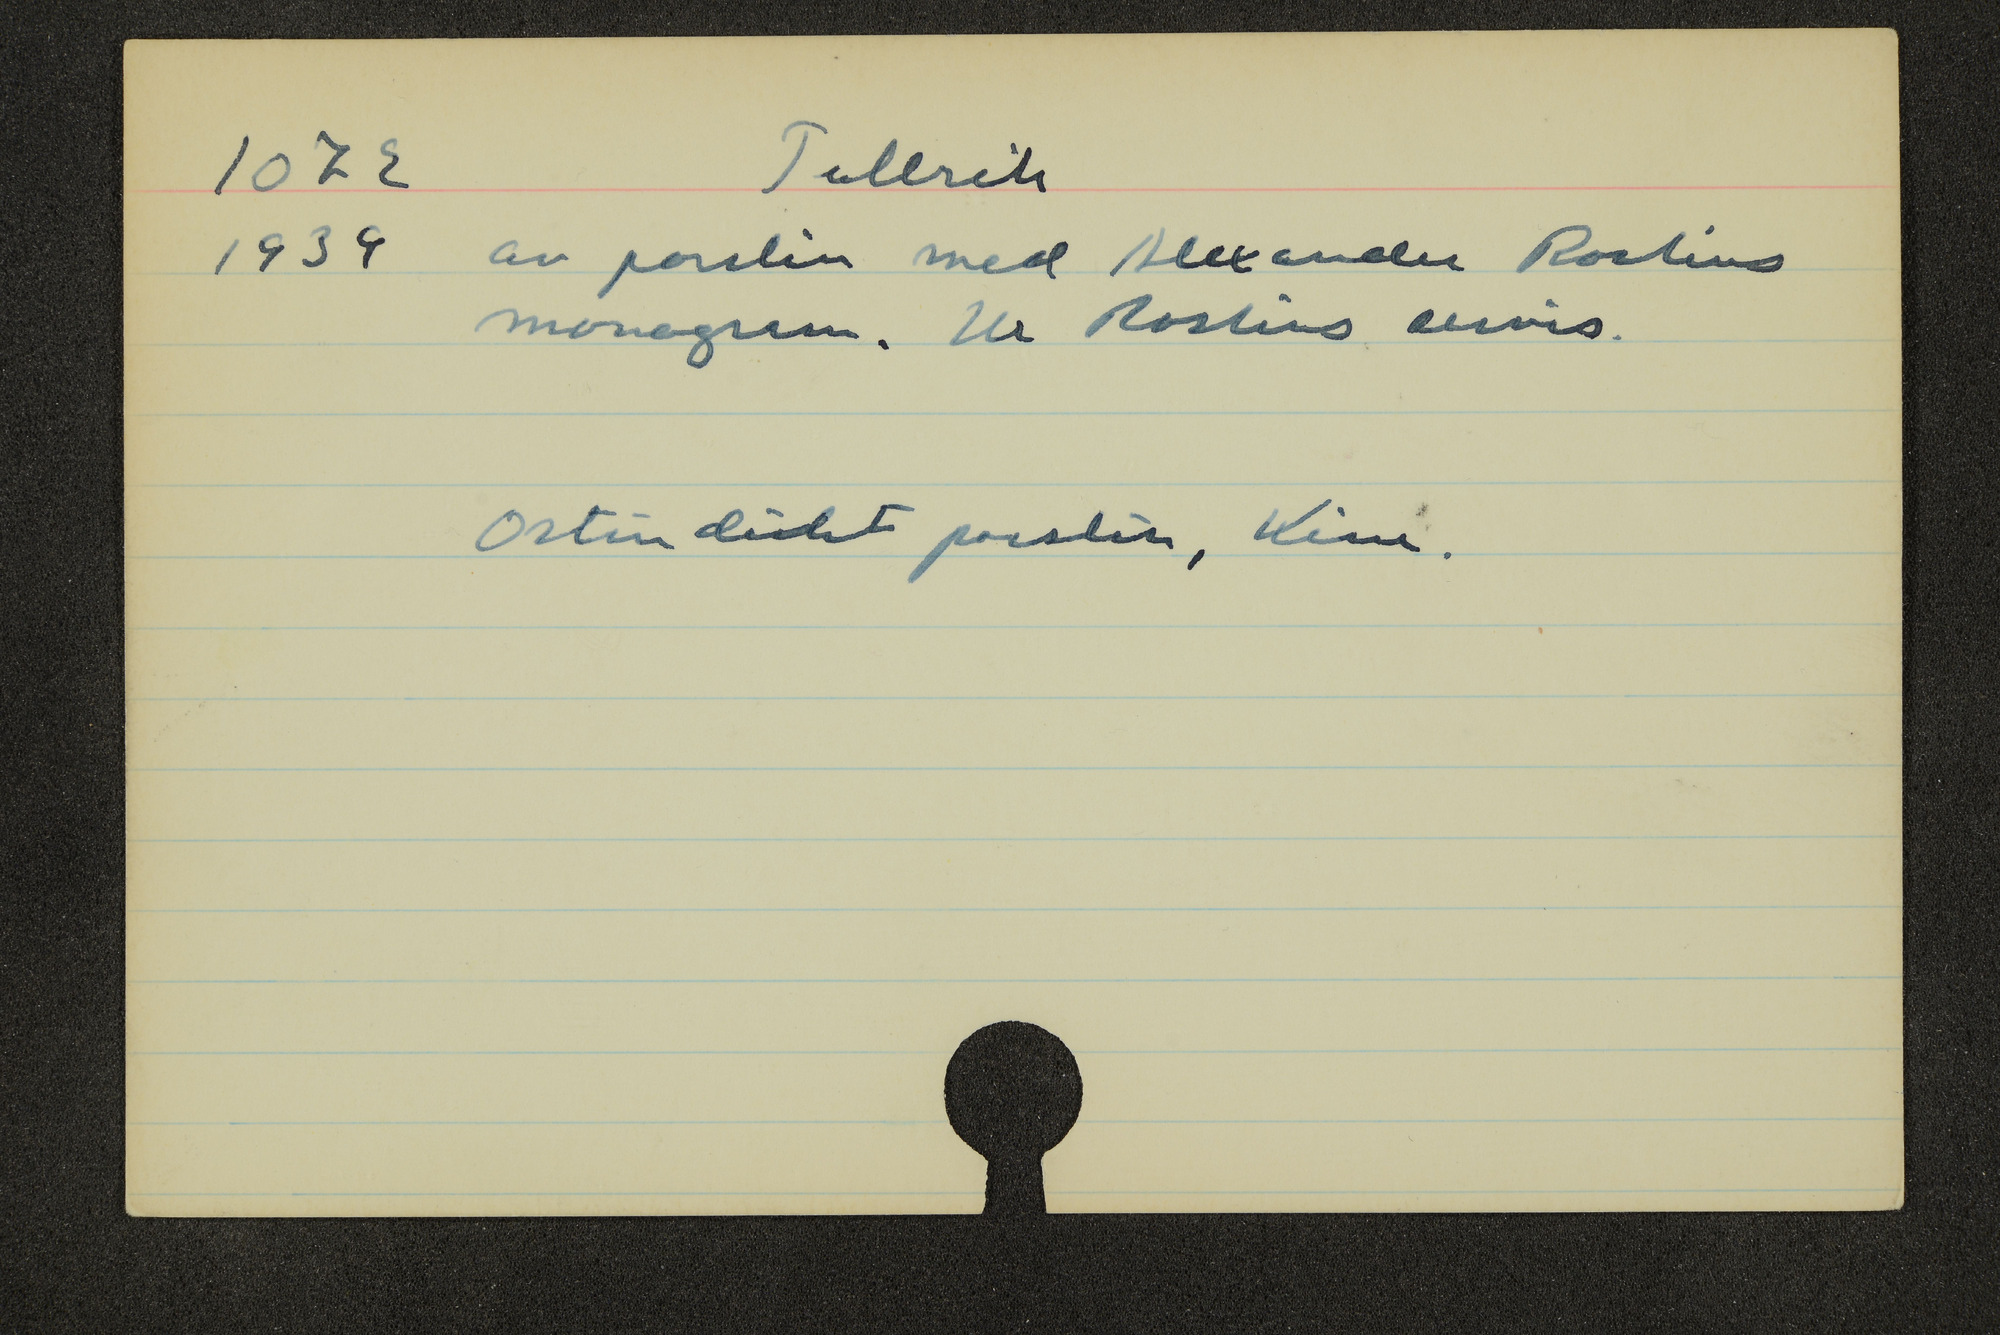 1072 Tallrik
1939 av porslin med Alexander Roslins
monogram. Ur Roslins servis.
Ostindiskt porslin, Kina.